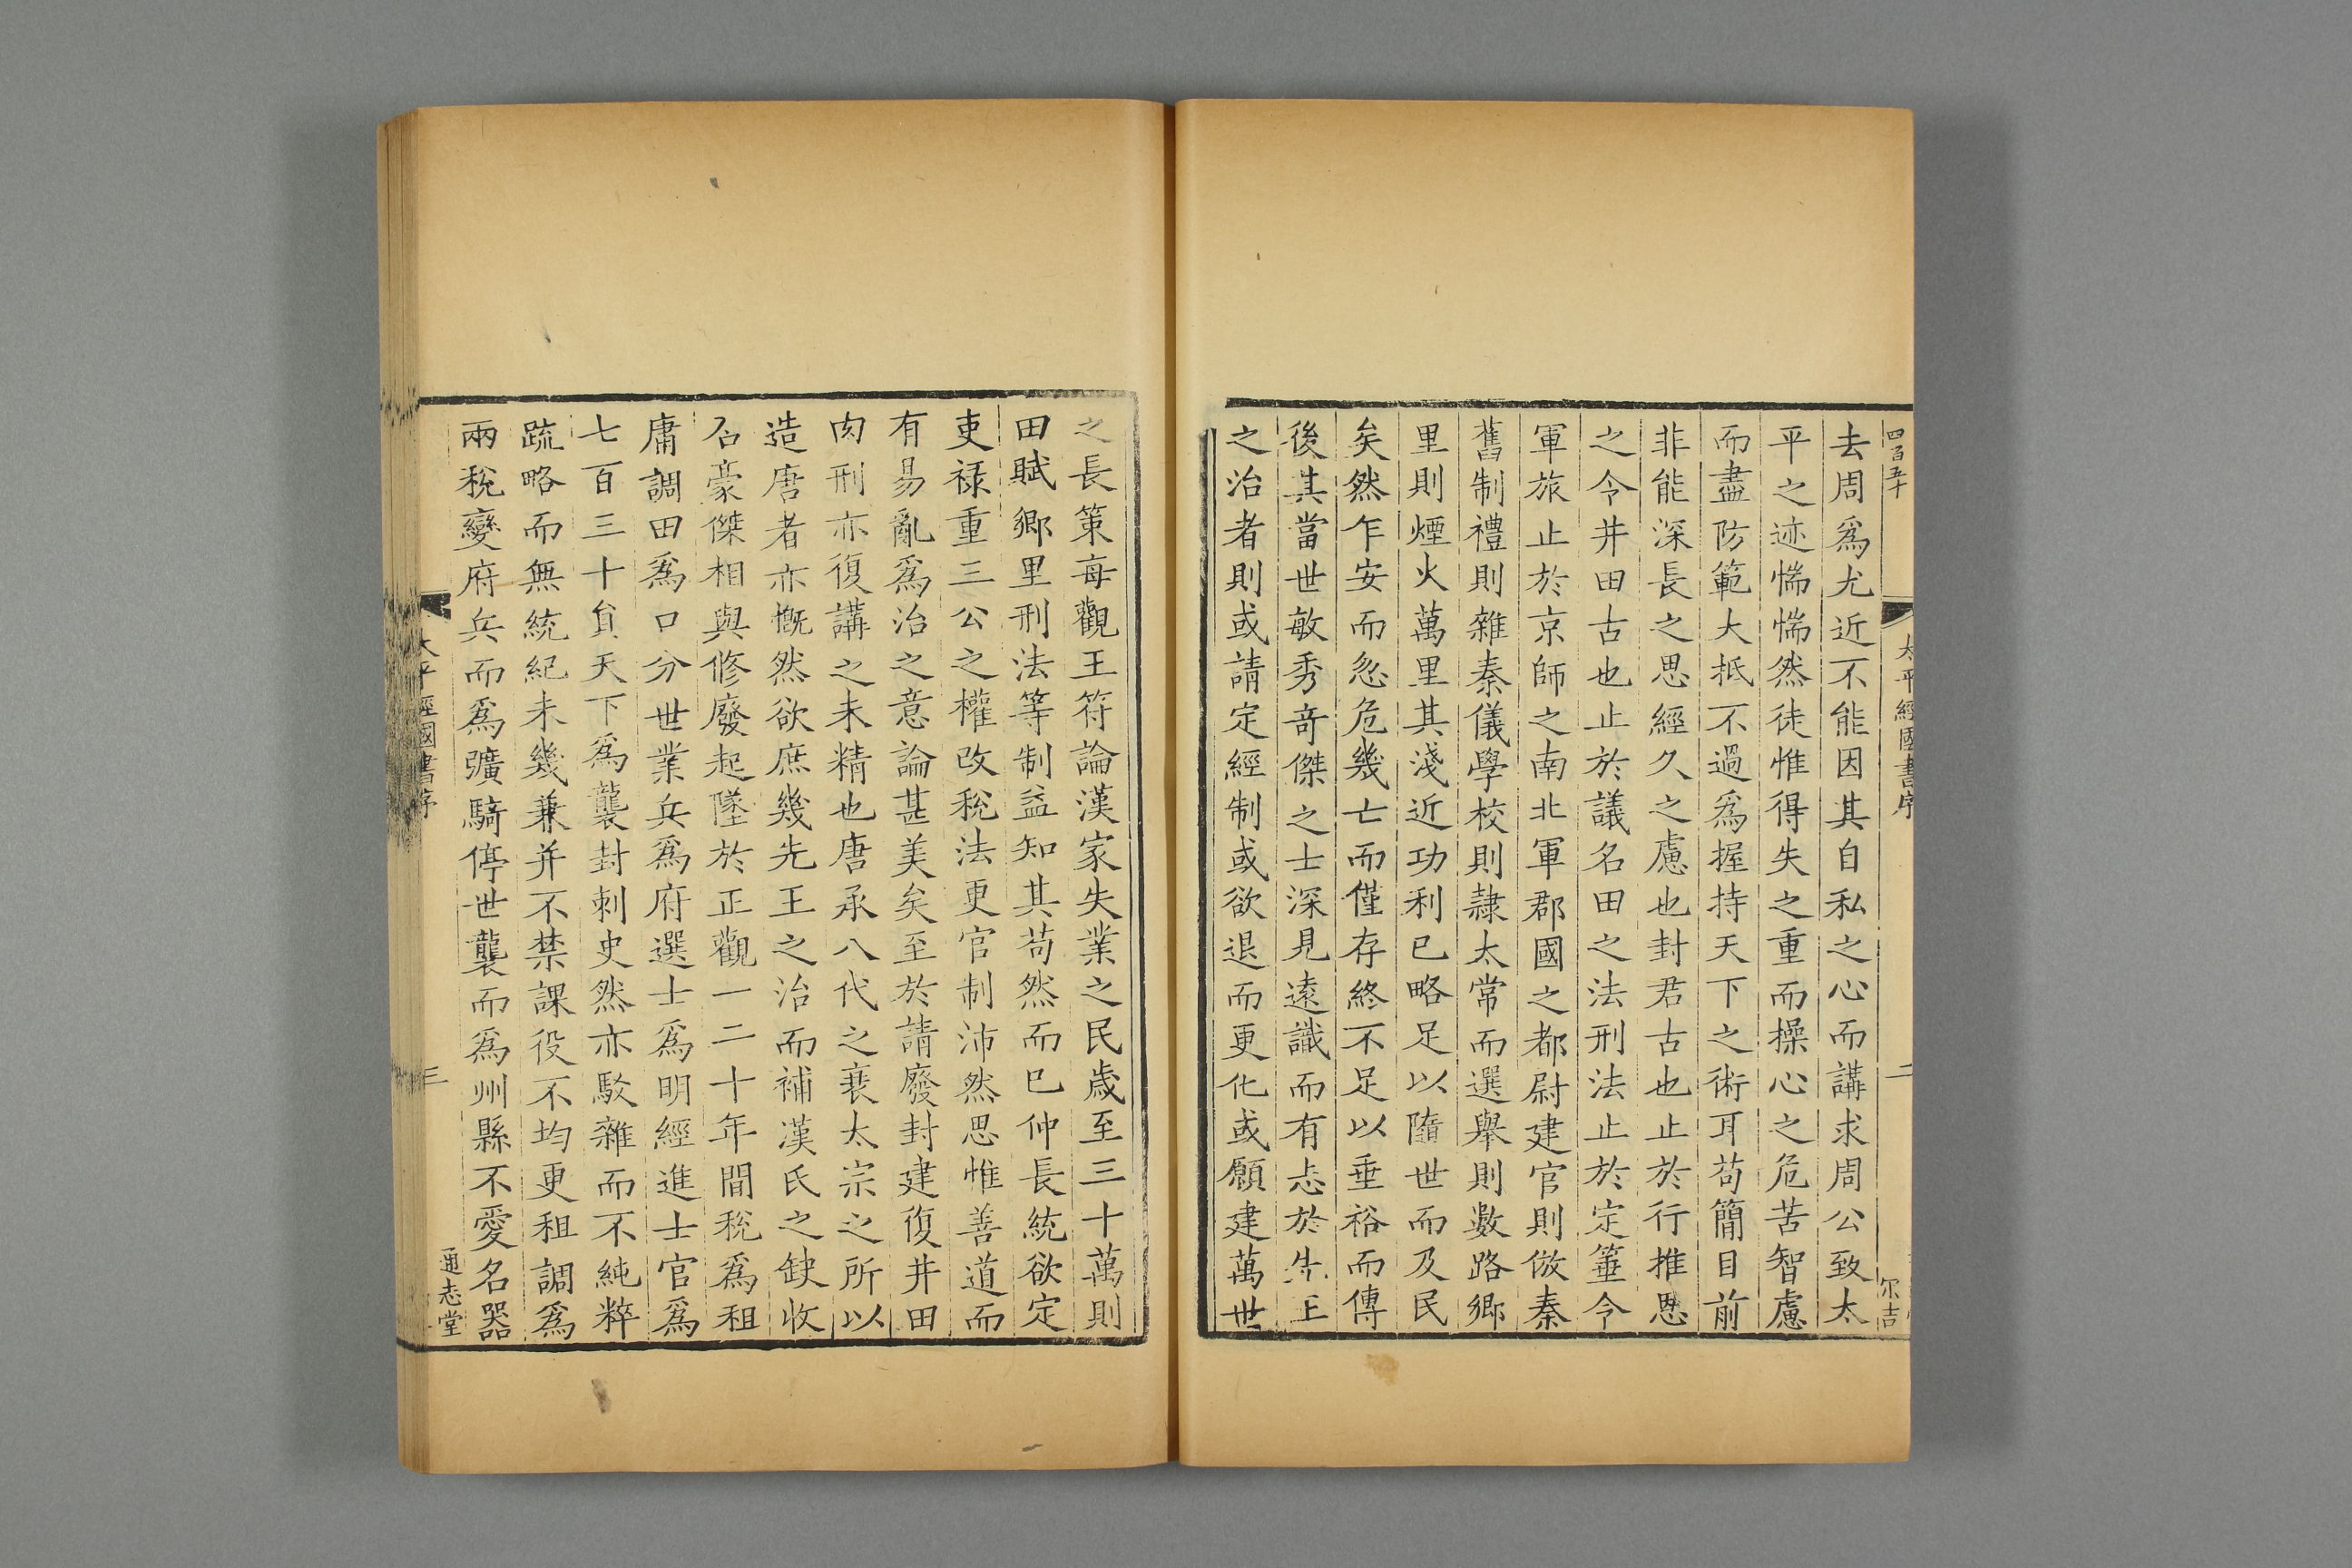 四百五十
太平經國書序
二
尔吉
去周爲尤近不能因其自私之心而講求周公致太
平之迹惴惴然徒惟得失之重而操心之危苦智慮
而盡防範大抵不過爲握持天下之術耳苟簡目前
非能深長之思經久之慮也封君古也止於行推恩
之令井田古也止於議名田之法刑法止於定箠令
軍旅止於京師之南北軍郡國之都尉建官則倣秦
舊制禮則雜秦儀學校則隷太常而選舉則數路鄉
里則煙火萬里其淺近功利已略足以隨世而及民
矣然乍安而忽危幾亡而僅存終不足以垂裕而傳
後其當世敏秀竒傑之士深見遠識而有志於先王
之治者則或請定經制或欲退而更化或願建萬世
之長策每觀王符論漢家失業之民歲至三十萬則
田賦鄉里刑法等制益知其苟然而已仲長統欲定
吏禄重三公之權改稅法更官制沛然思惟善道而
有易亂爲治之意論甚美矣至於請廢封建復井田
肉刑亦復講之未精也唐承八代之衰太宗之所以
造唐者亦慨然欲庶幾先王之治而補漢氏之缺收
召豪傑相與修廢起墜於正觀一二十年間稅爲租
庸調田爲口分世業兵爲府選士爲明經進士官爲
七百三十員天下爲襲封刺史然亦駁雜而不純粹
疏略而無統紀未幾兼并不禁課役不均更租調爲
兩稅變府兵而爲彍騎停世襲而爲州縣不愛名器
太平經國書序
三
通志堂